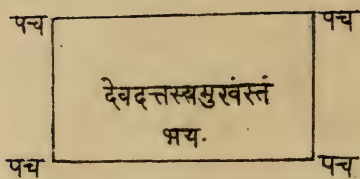 पच पच
देवदत्तस्यमुखंस्तं
भय.
पच पच